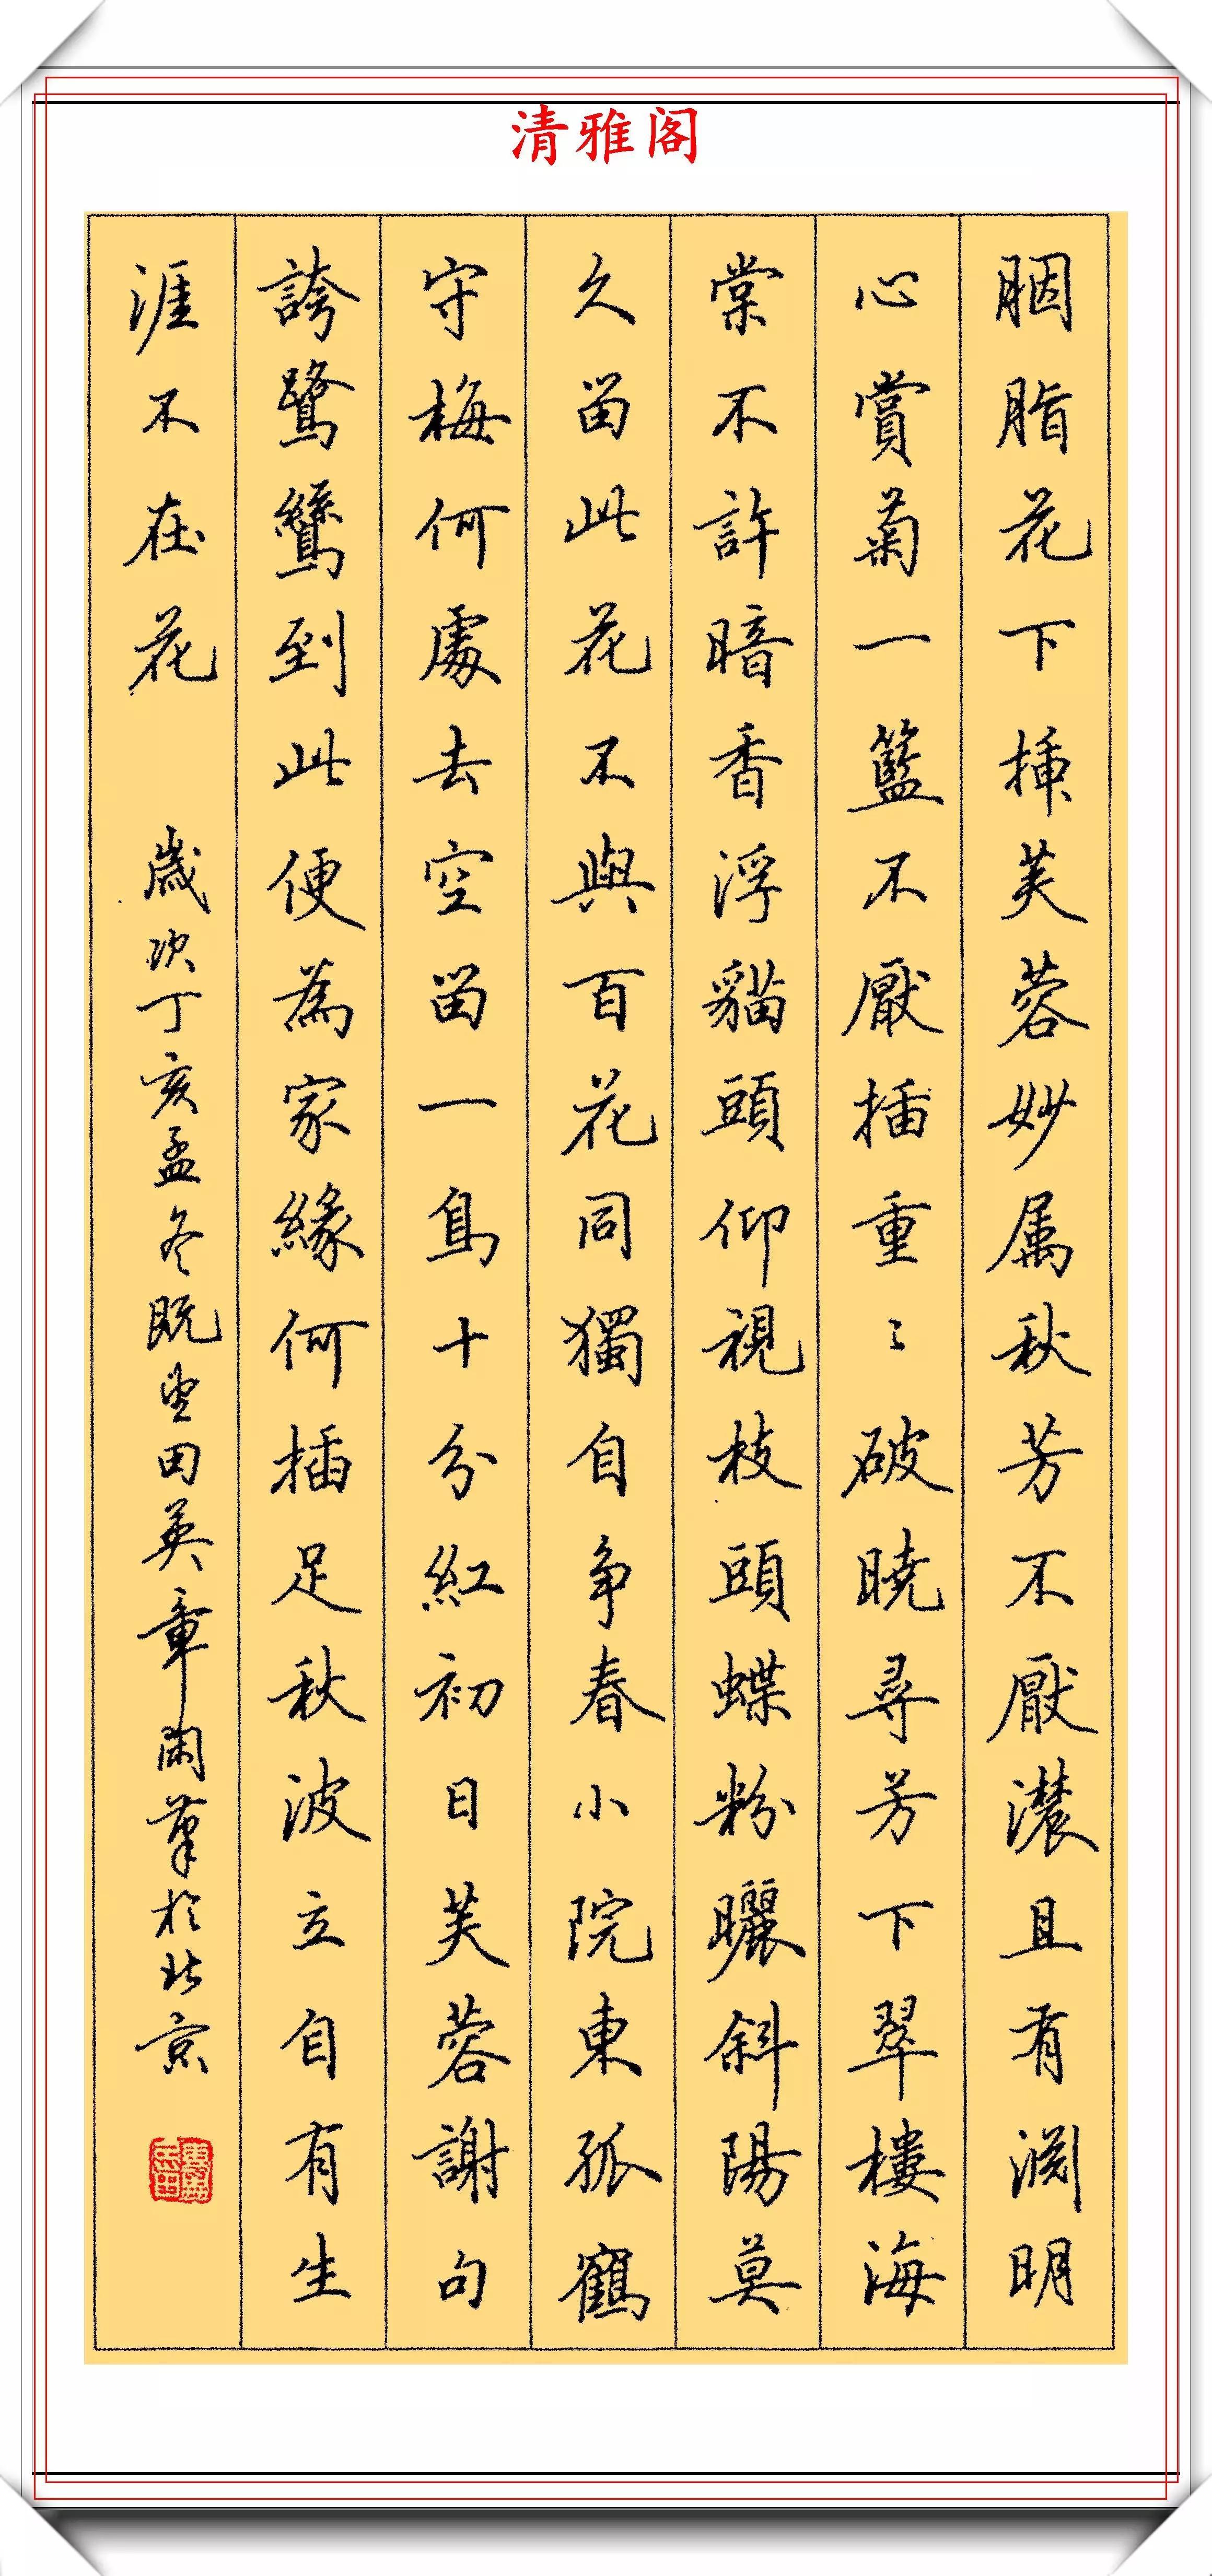 清雅阁
胭脂花下插芙蓉妙属秋芳不厭濃且有淵明
心賞菊一籃不厭插重〻破曉尋芳下翠樓海
棠不許暗香浮貓頭仰視枝頭蝶粉曬斜陽莫
久留此花不與百花同獨自争春小院東孤鶴
守梅何處去空留一鳥十分紅初日芙蓉謝句
誇鷺鷥到此便為家緣何插足秋波立自有生
涯不在花
歲次丁亥孟冬既望田英章閑筆於北京